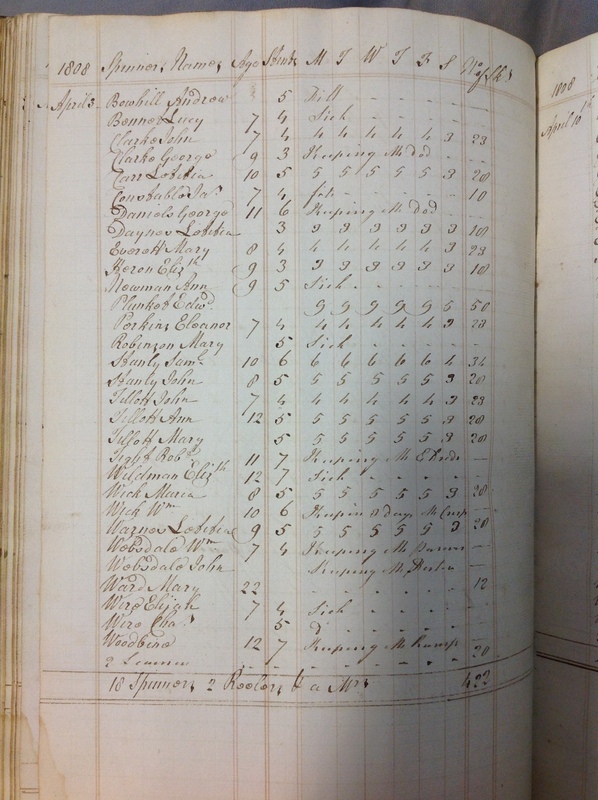 1808 Spinners Names Age Stint M T W T F S No of Sks
April 3 Bowhill Andrew 5 - - - -
Bonner Lucy 7 4 Sick - - - -
Clarke John 7 4 4 4 4 4 4 3 23
Clarke George 9 3 Keeping Mr - -
Carr Lætitia 10 5 5 5 5 5 5 3 28
Constable Jas 7 4 - - - - 10
Daniels George 11 6 Keeping Mr
Daynes Lætitia 3 3 3 3 3 3 3 18
Everett Mary 8 4 4 4 4 4 4 3 23
Heron Elizth 9 3 3 3 3 3 3 3 18
Newman Ann 9 5 Sick - - - - -
Plunket Edwd 9 9 9 9 9 5 50
Perkins Eleanor 7 4 4 4 4 4 4 3 23
Robinson Mary 5 Sick - - - - -
Stanly Saml 10 6 6 6 6 6 6 4 34
Stanly John 8 5 5 5 5 5 5 3 28
Tillott John 7 4 4 4 4 4 4 3 23
Tillott Ann 12 5 5 5 5 5 5 3 28
Tillott Mary 5 5 5 5 5 5 3 28
Robt 11 7 Keeping Mr -
Wildman Elizth 12 7 Sick - - - -
Wick Maria 8 5 5 5 5 5 5 3 28
Wick Wm 10 6 Keepin 3 days Mr
Warnes Lætitia 9 5 5 5 5 5 5 3 28
Websdale Wm 7 4 Keeping Mr -
Websdale John Keeping Mr -
Ward Mary 22 - - - - - 12
Wire Elijah 7 4 Sick - - - -
Wire Chas 5 Do - - - - -
Woodbine 12 7 Keeping Mr Kemp -
2 Learners - - - - - - 20
18 Spinners 2 Reelers & a Mrs 422
1808
April 10th